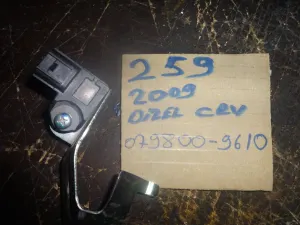 259
2009
DIZEL CRV
079800-9610